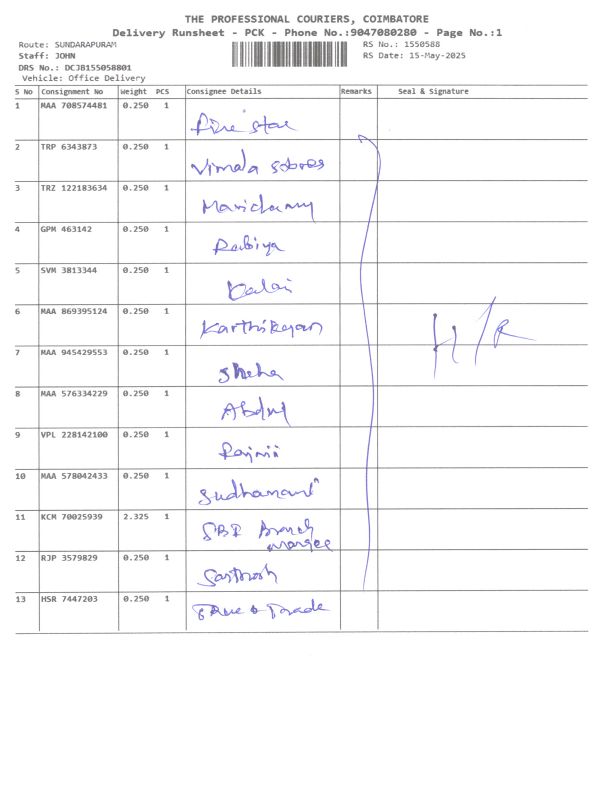 THE PROFESSIONAL COURIERS, COIMBATORE
Delivery Runsheet - PCK - Phone No.:9047080280 - Page No.:1
Route: SUNDARAPURAM RS No.: 1550588
Staff: JOHN RS Date: 15-May-2025
DRS No.: DCJB155058801
Vehicle: Office Delivery
S No Consignment No Weight PCS Consignee Details Remarks Seal & Signature
1 MAA 708574481 0.250 1
Fire star
2 TRP 6343873 0.250 1
Vimala Sobres
3 TRZ 122183634 0.250 1
4 GPM 463142 0.250 1
Rabiya
5 SVM 3813344 0.250 1
Kalai
6 MAA 869395124 0.250 1
Karthikeyan
7 MAA 945429553 0.250 1
Sneha
8 MAA 576334229 0.250 1
Abdul
9 VPL 228142100 0.250 1
Rajnii
10 MAA 578042433 0.250 1
11 KCM 70025939 2.325 1
SBI Branch
12 RJP 3579829 0.250 1
Santhosh
13 HSR 7447203 0.250 1
Trade